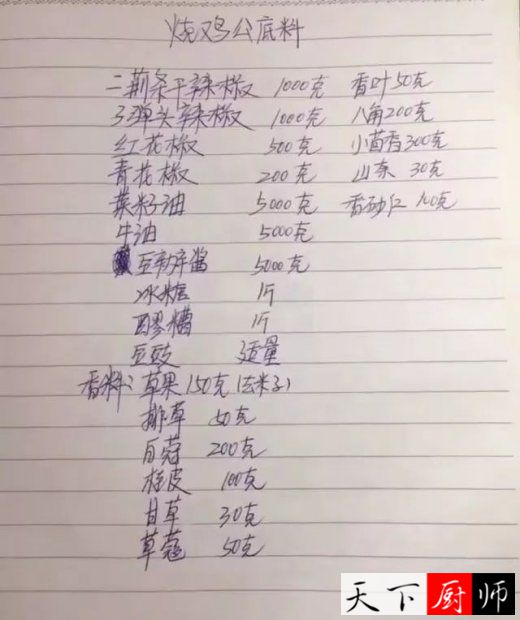 烧鸡公底料
二荆条干辣椒 1000克 香叶50克
子弹头辣椒 1000克 八角200克
红花椒 500克 小茴香300克
青花椒 200克 山奈 30克
菜籽油 5000克 香砂仁 100克
牛油 5000克
豆瓣酱 5000克
冰糖 1斤
醪糟 1斤
豆豉 适量
香料:草果150克(去籽)
排草 50克
白蔻 200克
桂皮 100克
甘草 30克
草蔻 50克
天下厨师